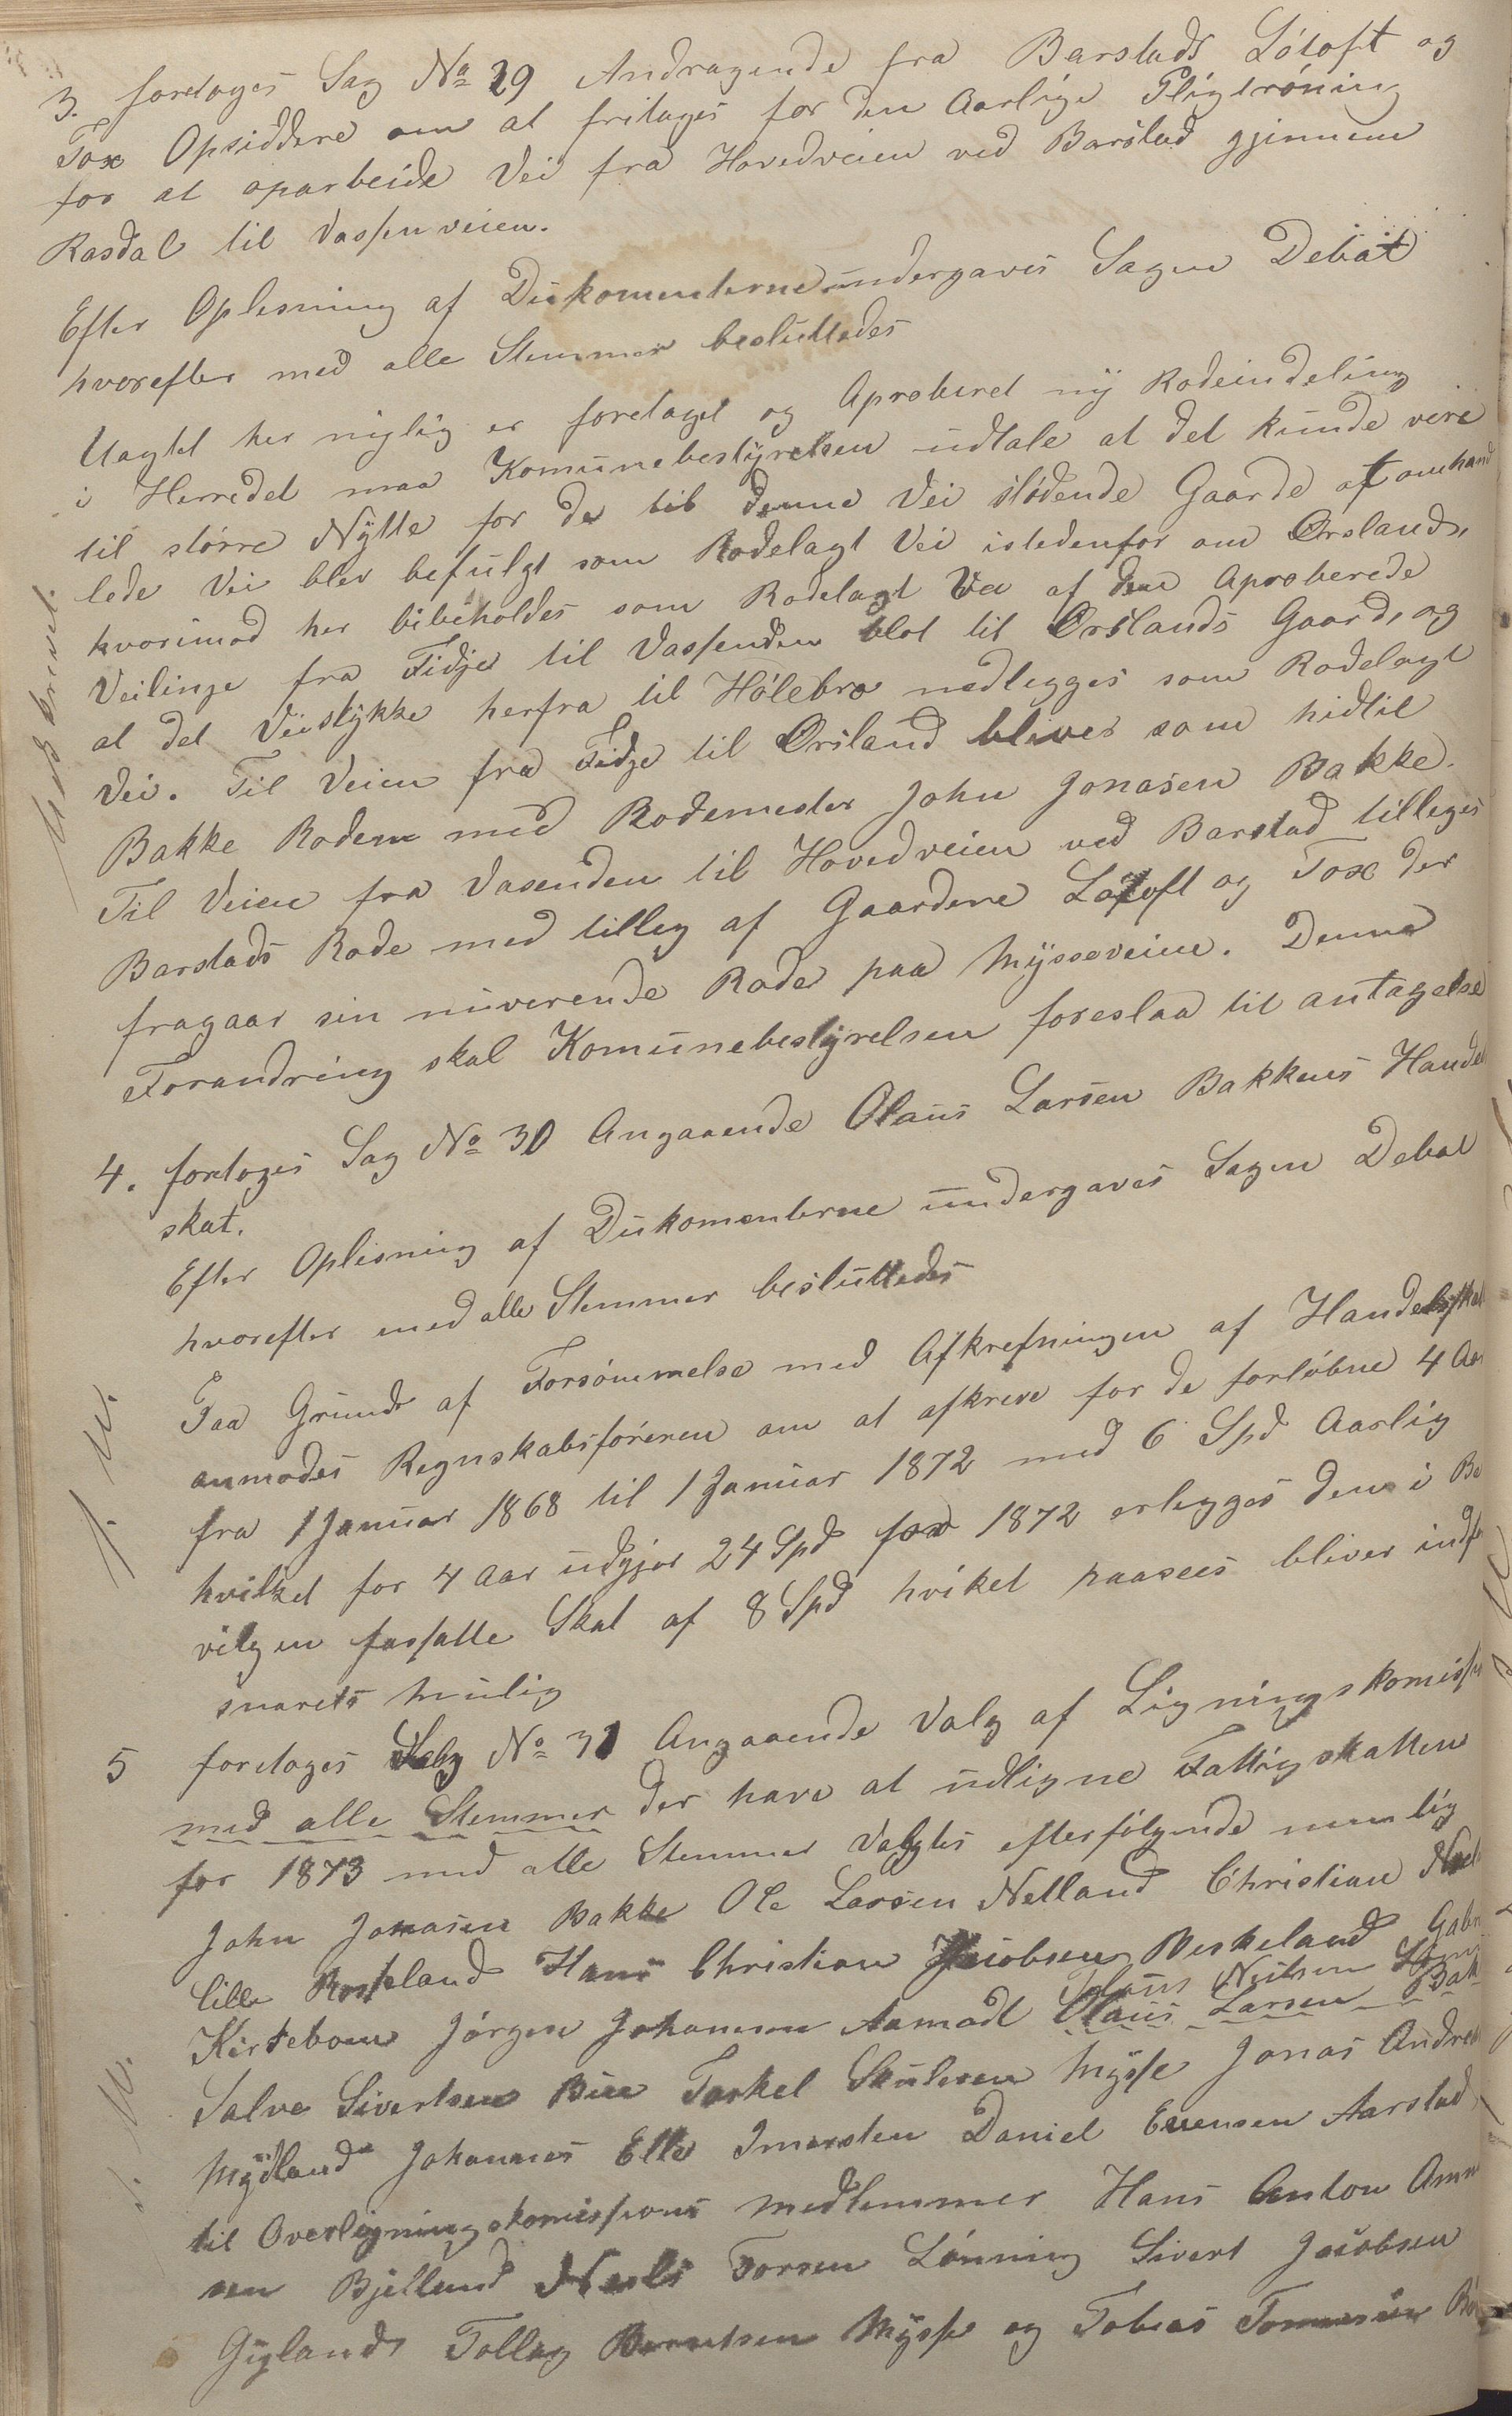 3. foretoges Sag No 29 Andragende fra Barstads Lótoft og
Tox Opsiddere om at fritages for den Aarlige Pligtróning
for at oparbeide Vei fra Hovedveien ved Barstad gjinnem
Rasdal til Vassenveien.
Efter Oplesning af Dukomenterne undergaves Sagen Debat
hvorefter med alle Stemmer besluttedes
Uagtet her nylig er foretaget og Aproberet ny Rodeindeling
i Herredet maa Komunebestyrelsen udtale at det kunde vere
til större Nytte for de til denne Vei stódende Gaarde at omhand
lede Vei blev befulgt som Rodelagt Vei istedenfor om Ørslands,
hvorimod her bibeholdes som Rodelagt Vei af den Aproberede
Veilinge fra Fidje til Vassenden blot til Ørslands Gaard, og
at det Veistykke herfra til Hólebro nedlegges som Rodelagt
Vei. Til Veien fra Fidje til Ørsland bliver som hidtil
Bakke Roden med Rodemester John Jonasen Bakke.
Til Veien fra Vasenden til Hovedveien ved Barstad tilleges
Barstads Rode med tilleg af Gaardene Lótoft og Tox der
fragaar sin nuverende Rode paa Mysseveien. Denne
Forandring skal Komunebestyrelsen foreslaa til antagelse
4. foretoges Sag No 30 Angaaende Olaus Larsen Bakkens Handel
skat.
Efter Oplesning af Dukomenterne undergaves Sagen Debat
hvorefter med alle Stemmer besluttedes
Paa Grund af Forsómmelse med Afkrefningen af Handelsskat
anmodes Regnskabsfóreren om at afkreve for de forlóbne 4 Aar
fra 1 Januar 1868 til 1 Januar 1872 med 6 Spd Aarlig
hvilket for 4 Aar udgjør 24 Spd for 1872 erlegges den i Be
vilgen fassatte Skat af 8 Spd hviket paasees bliver indf
snarets mulig
5 foretoges Sag No 31 Angaaende Valg af Ligningskomiss
med alle Stemmer der have at udligne Fattigskatten
for 1873 med alle Stemmer Valgtes efterfólgende nemlig
John Jonasen Bakke Ole Larsen Netland Christian
lille Rosseland Hans Christian Jacobsen Veskeland Gabr
Kirkeboen Jórgen Johannesen Aamodt Olaus Larsen Bak
Salve Sivertsen Bue Torkel Skulesen Mysse Jonas Andre
Mydland Johannes Elle Daniel Evensen Aarstad
til Overligningskomissions medlemmer Hans Anton
sen Bjelland Neels Torsen Lónning Sivert Jacobsen
Gyland Tollag Berentsen Mysse og Tobias